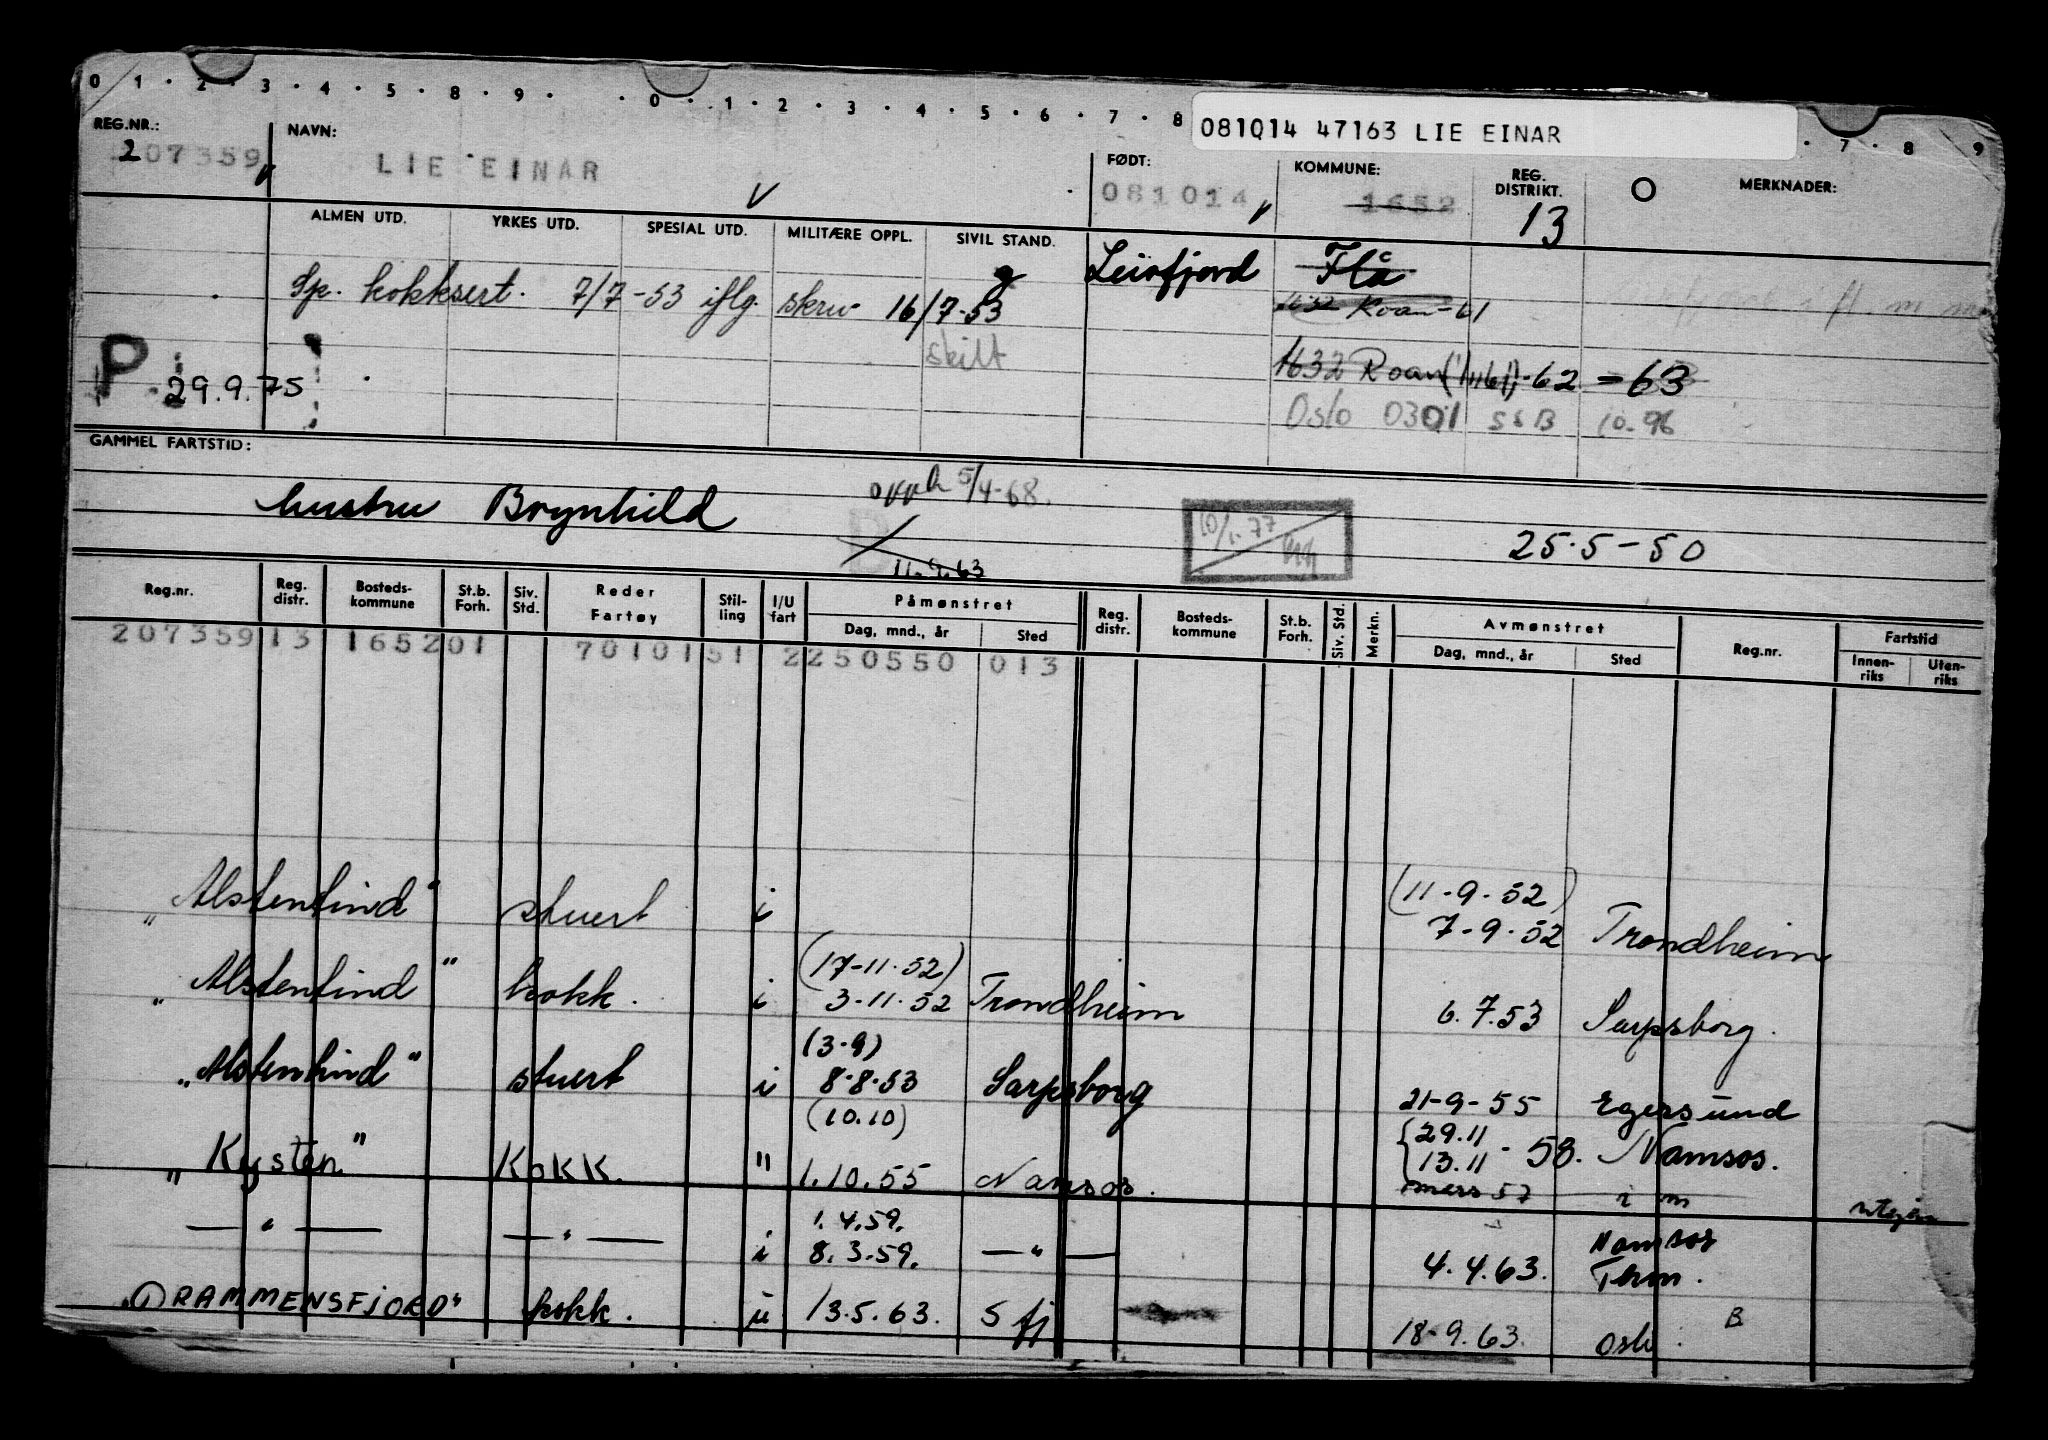 0 1 · 2 · 3 · 4 · 5 · 8 · 9 · · 0 · 1 · 2 · 3 · 4 · 5 · 6 · 7 · 8 · 7 · 8 9
081014 47163 LIE EINAR
REG.NR.: NAVN: FØDT: KOMMUNE: REG. DISTRIKT. O MERKNADER:
207359 LIE EINAR 081014 1652 13
ALMEN UTD. YRKES UTD. SPESIAL UTD. MILITÆRE OPPL. SIVIL STAND.
g Leirfjord Flå
Sp. kokksert. 7/7-53 iflg. skriv 16/7-53 1632 Roan -61
skilt
P 29.9.75 1632 Roan (1/11 61) -62 = 63
Oslo 0301 SSB 10-96
GAMMEL FARTSTID:
hustru Brynhild opph 5/4-68.
10/1.77
25.5-50
11.9.63
Reg.nr. Reg. distr. Bosteds-kommune St.b. Forh. Siv. Std. Reder Fartøy Stil-ling I/U fart Påmønstret Dag, mnd., år Sted Reg. distr. Bosteds-kommune St.b. Forh. Siv. Std. Merkn. Avmønstret Dag, mnd., år Sted Reg.nr. Fartstid Innen-riks Uten-riks
207359 13 165201 7010151 2250550 013
(11-9-52)
„Alstentind" stuert i 7-9-52 Trondheim
(17-11-52)
„Alstentind" kokk. i 3-11-52 Trondheim 6.7.53 Sarpsborg.
(3-9)
„Alstentind" stuert i 8-8-53 Sarpsborg 21-9-55 Egersund
(10.10) 29.11
„Kysten" KOKK. " 1.10.55 Namsos. 13.11 - 58. Namsos.
mers 57 i m
1.4.59. Namsos
— " — — " — i 8.3.59. — " — 4.4.63. Thm.
„DRAMMENSFJORD" kokk. u 13.5.63. S fj B
18-9.63. Oslo